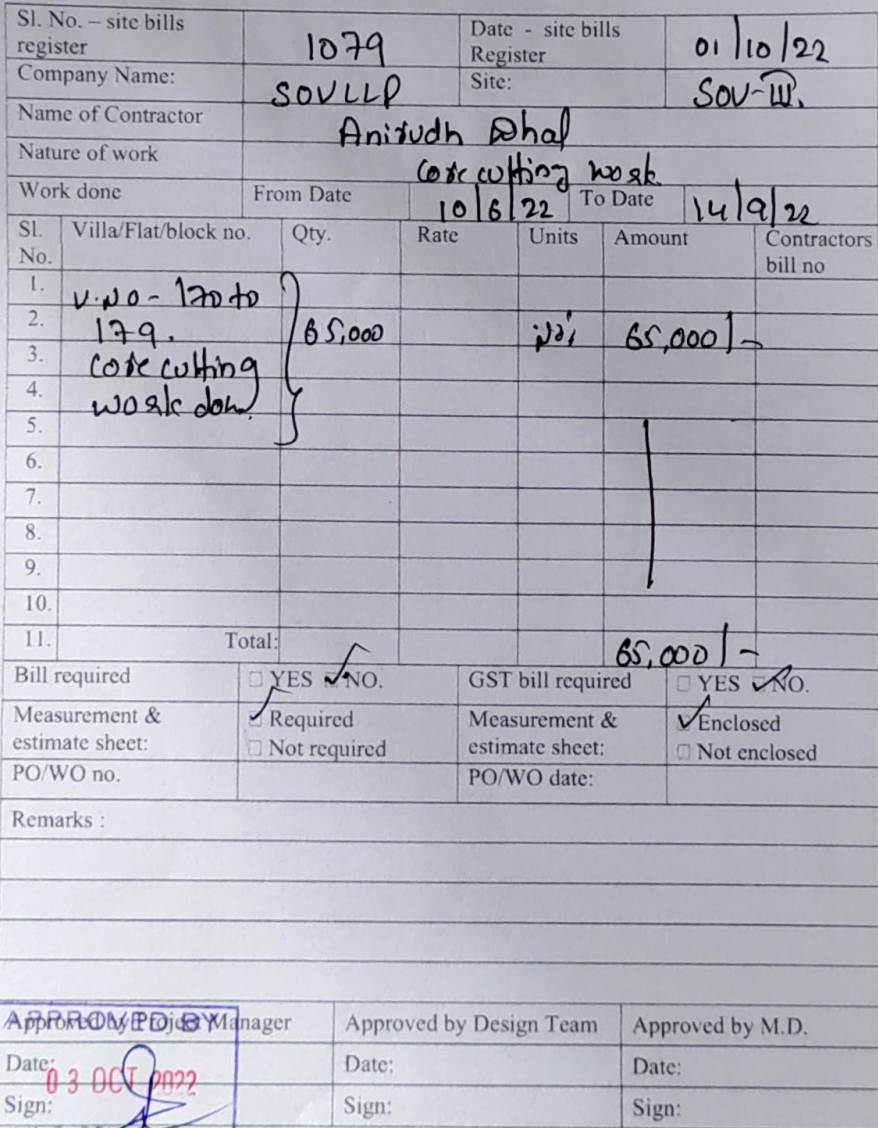 Sl. No. – site bills register 1079 Date - site bills Register 01/10/22
Company Name: SOVLLP Site: SOV-III.
Name of Contractor Anirudh Dhal
Nature of work Core cutting work
Work done From Date 10/6/22 To Date 14/9/22
Sl. No. Villa/Flat/block no. Qty. Rate Units Amount Contractors bill no
1. V.NO - 170 to
2. 179. 65,000 65,000/-
3. core cutting
4. work done
5.
6.
7.
8.
9.
10.
11. Total: 65,000/-
Bill required YES NO. GST bill required YES NO.
Measurement & estimate sheet: Required Not required Measurement & estimate sheet: Enclosed Not enclosed
PO/WO no. PO/WO date:
Remarks :
APPROVED BY
Approved by Project Manager Approved by Design Team Approved by M.D.
Date: 03 OCT 2022 Date: Date:
Sign: Sign: Sign: